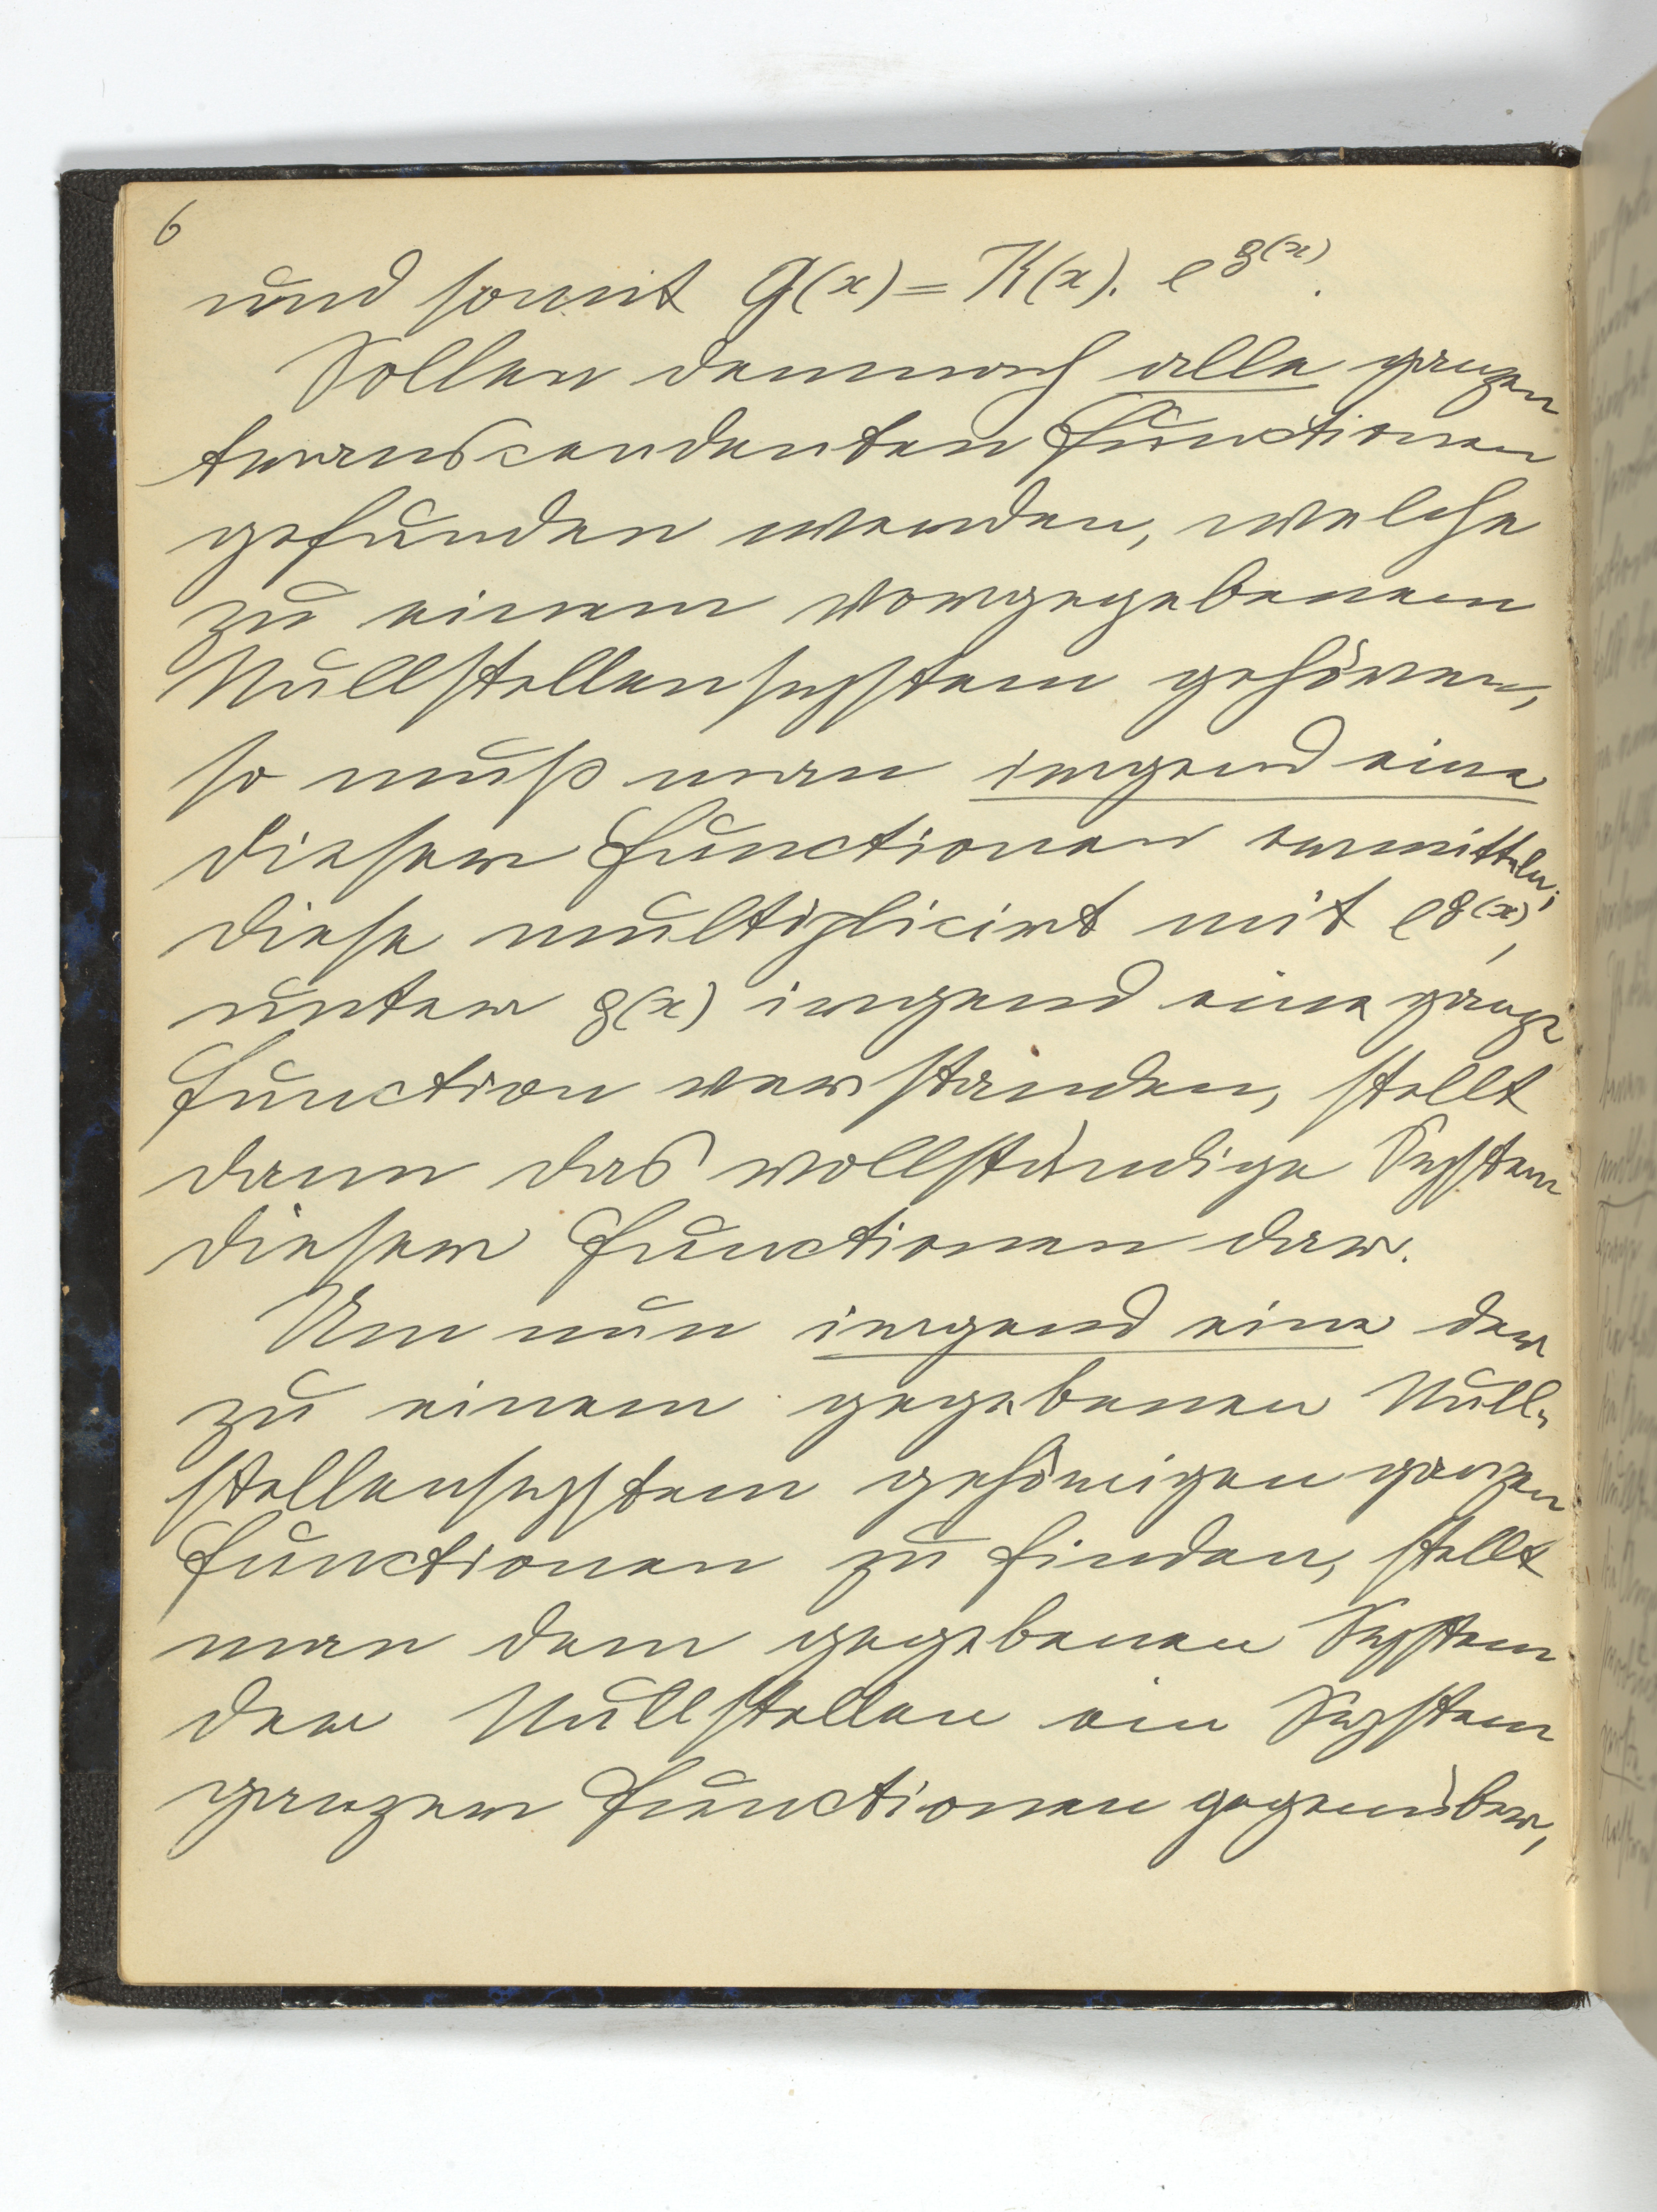 6
und somit G(x) = K(x). e^g(x).
Sollen demnach alle ganzen
transcendenten Functionen
gefunden werden, welche
zu einem vorgegebenen
Nullstellensystem gehören,
so muß man irgend eine
dieser Functionen ermitteln;
diese multiplicirt mit e^g(x),
unter g(x) irgend eine ganze
Function verstanden, stellt
dann das vollständige System
dieser Functionen dar.
Um nun irgend eine der
zu einem gegebenen Null-
stellensystem gehörigen ganzen
Functionen zu finden, stellt
man dem gegebenen System
der Nullstellen ein System
ganzer Functionen gegenüber,